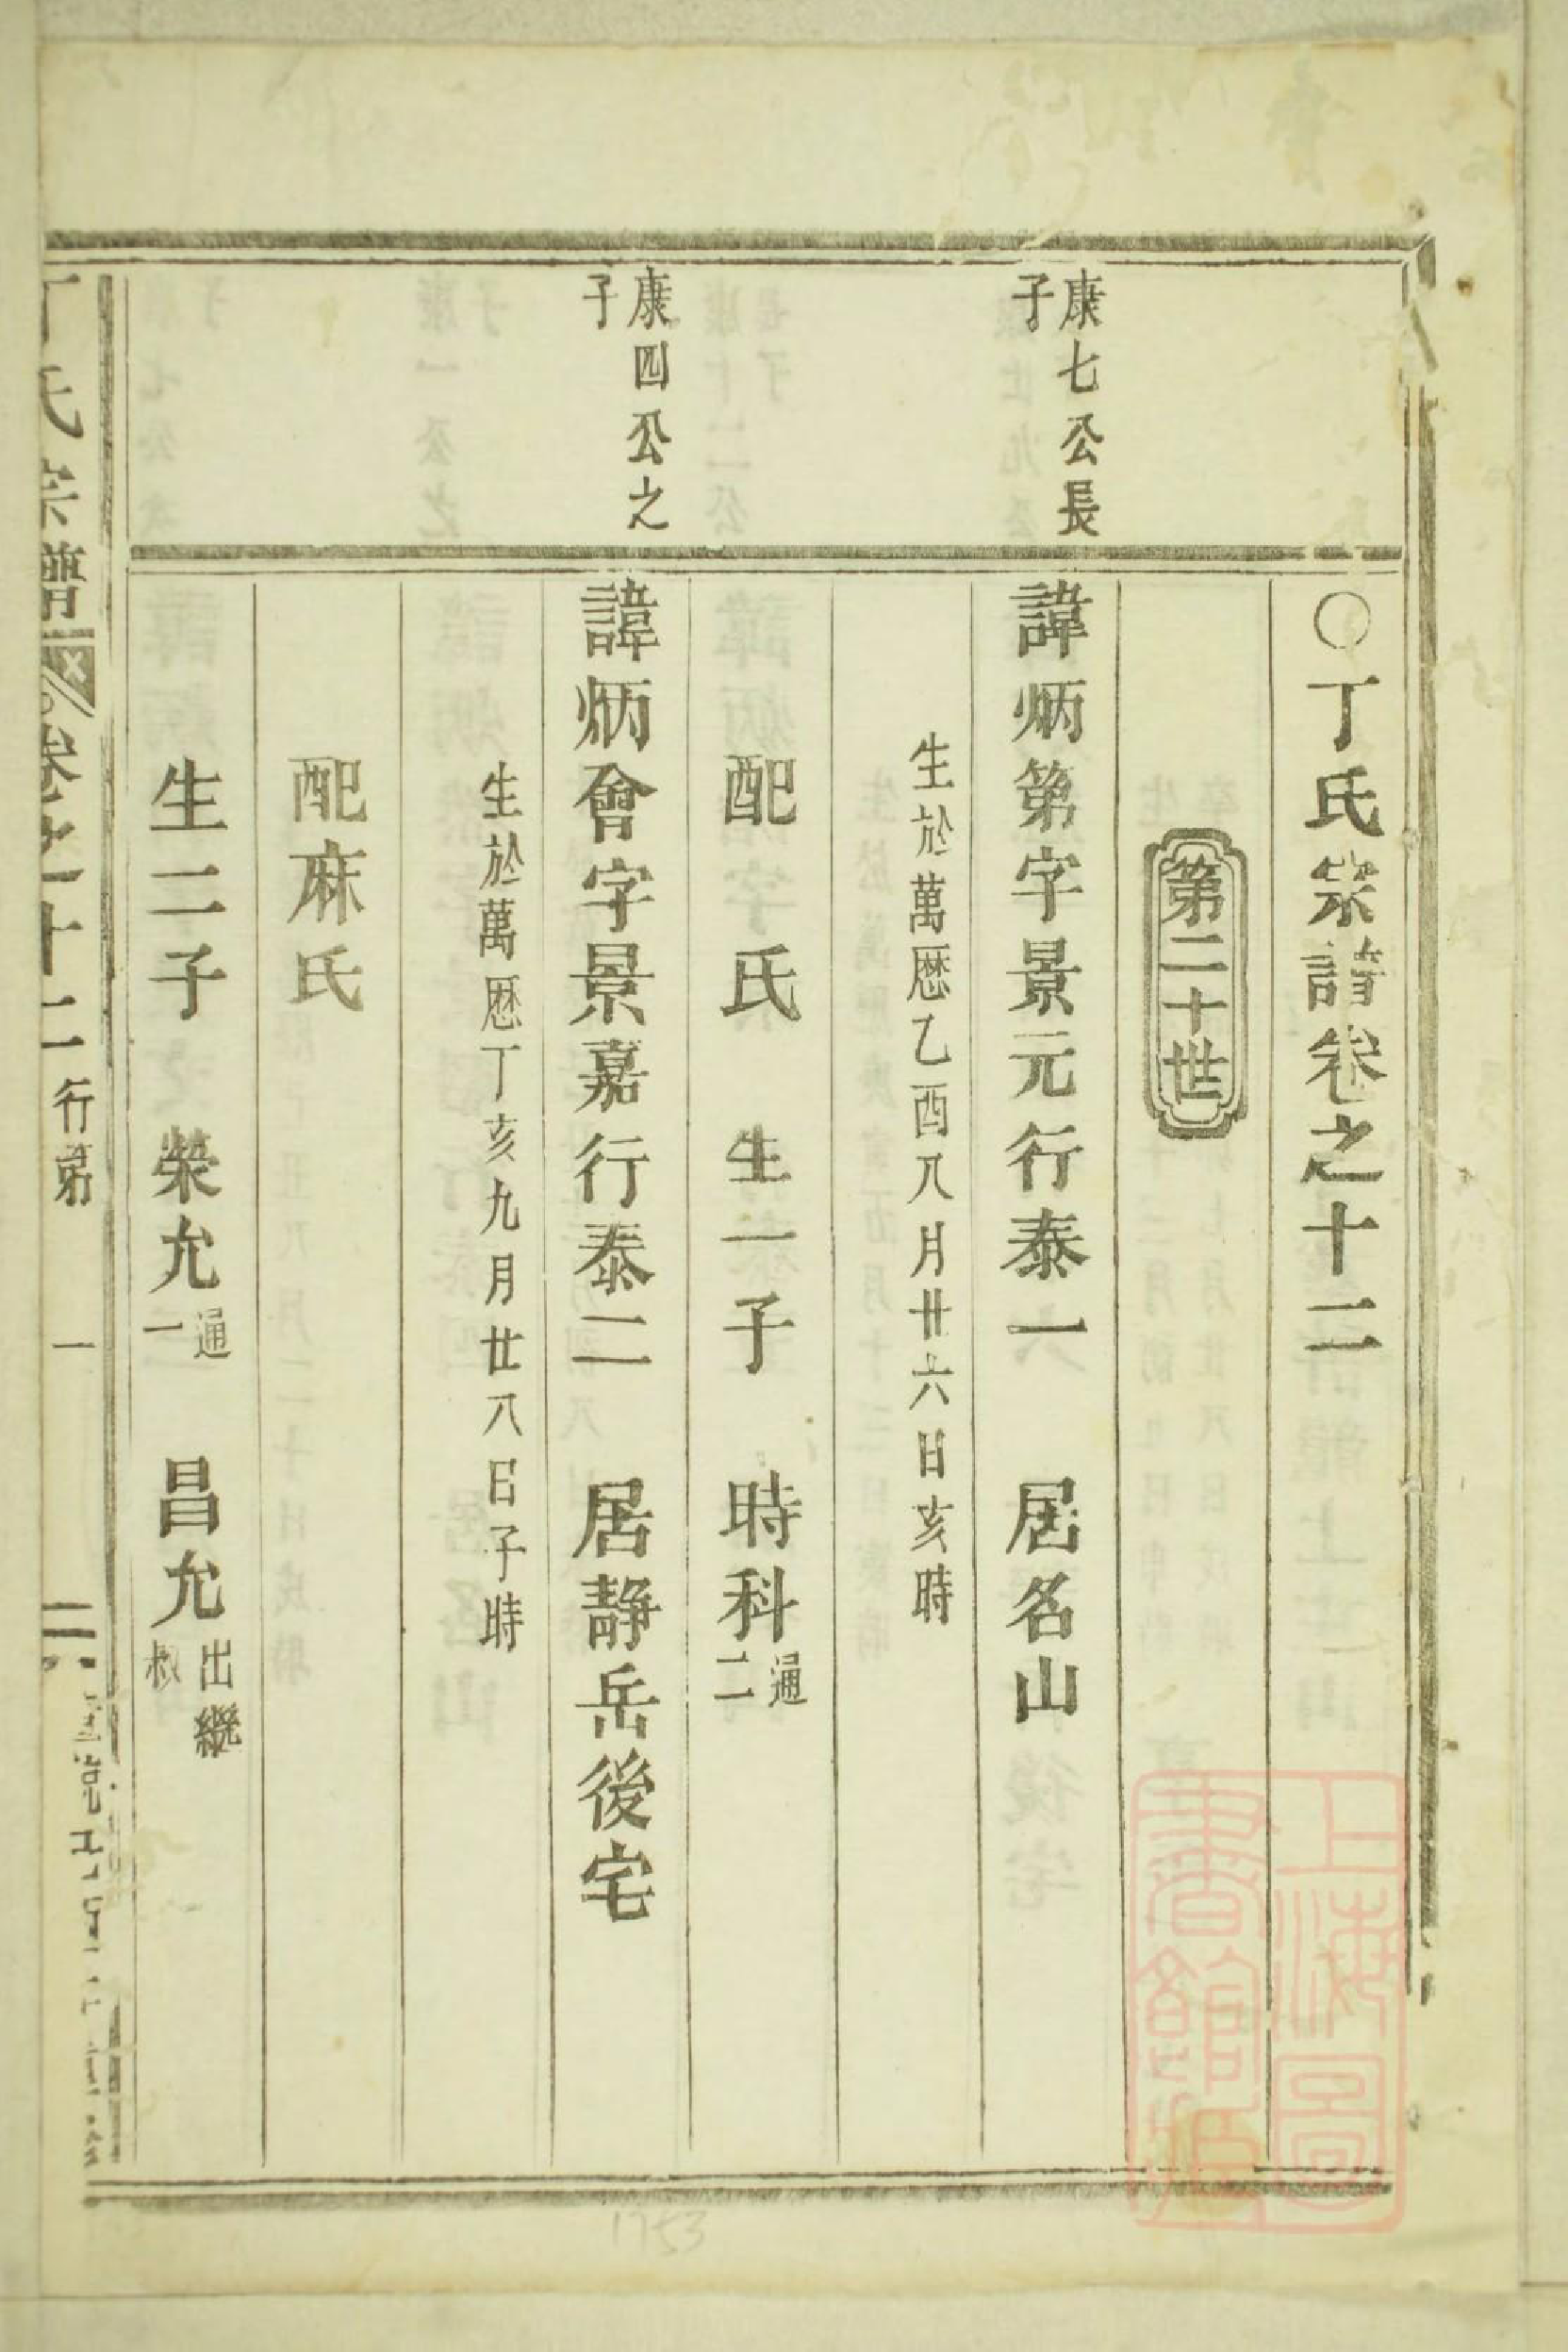 ○丁氏宗譜卷之十二
第二十世
康七公長
子
諱炳第字景元行泰一 居名山
生於萬厯乙酉八月廿六日亥時
配 氏 生一子 時科通二
康四公之
子
諱炳會字景嘉行泰二 居靜岳後宅
生於萬厯丁亥九月廿八日子時
配麻氏
生二子 榮允通一 昌允出繼
丁氏宗譜 卷之十二 行第 一
上海圖書館藏
1753